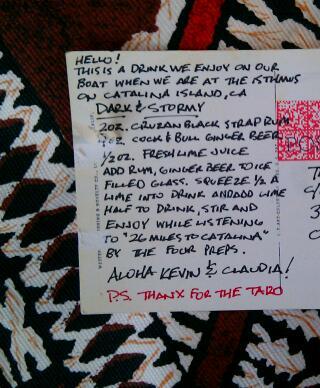 HELLO!
THIS IS A DRINK WE ENJOY ON OUR
BOAT WHEN WE ARE AT THE ISTHMUS
ON CATALINA ISLAND, CA
DARK & STORMY
2OZ. CRUZAN BLACK STRAP RUM
OZ. COCK & BULL GINGER BEER
1/2OZ. FRESH LIME JUICE
ADD RUM, GINGER BEER TO ICE
FILLED GLASS. SQUEEZE 1/2 A
LIME INTO DRINK AND ADD LIME
HALF TO DRINK, STIR AND
ENJOY WHILE LISTENING
TO "26 MILES TO CATALINA"
BY THE FOUR PREPS.
ALOHA KEVIN & CLAUDIA!
P.S. THANX FOR THE TARO